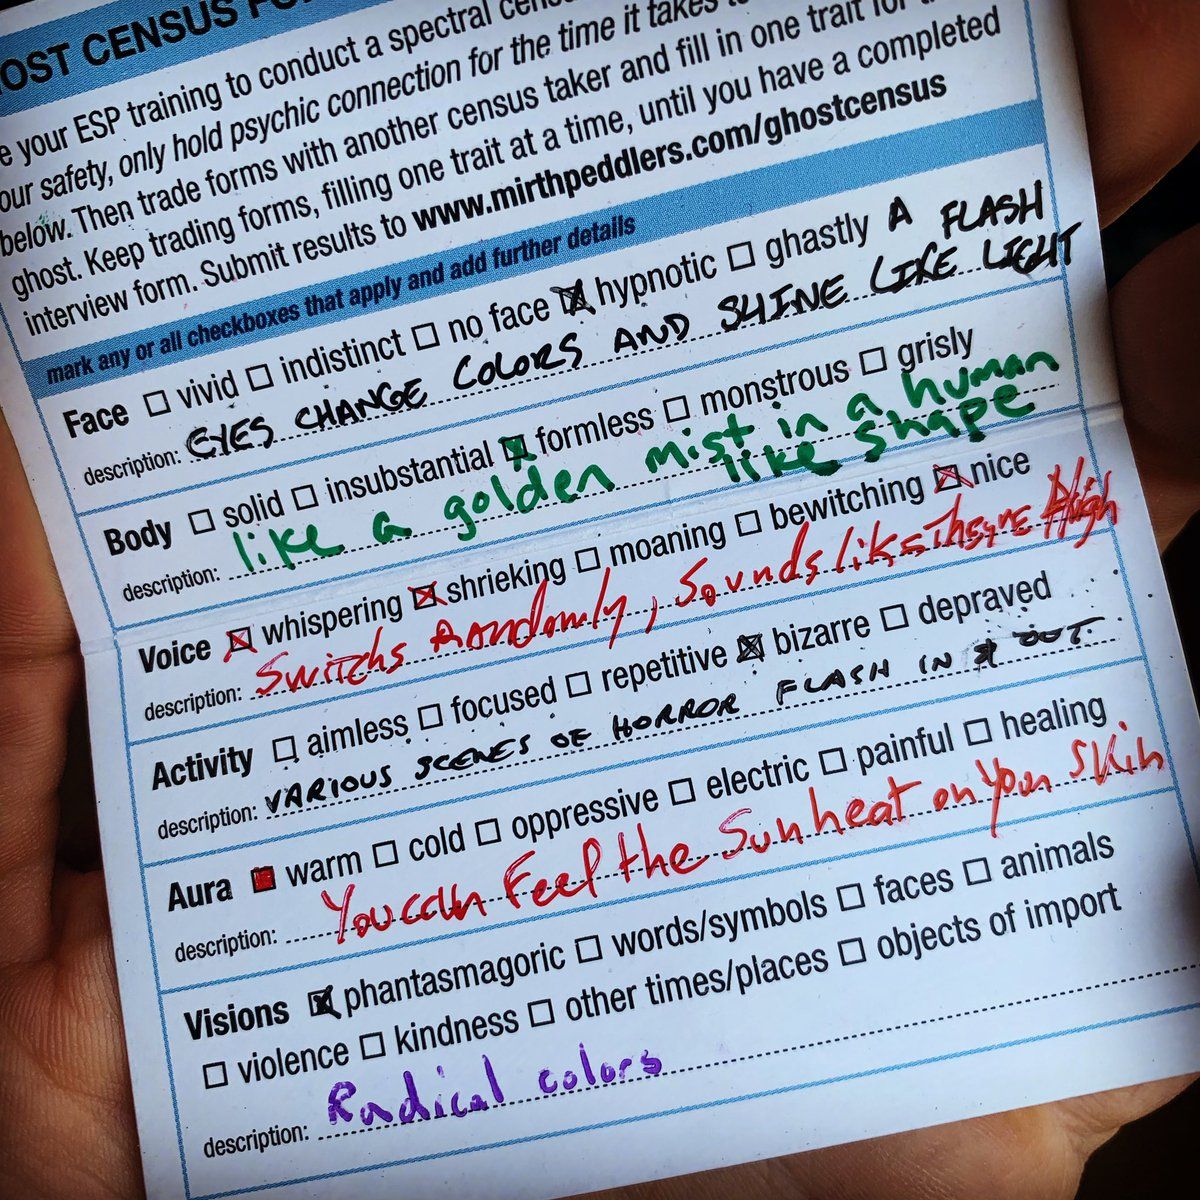 OST CENSUS FO
e your ESP training to conduct a spectral cens
our safety, only hold psychic connection for the time it takes to
below. Then trade forms with another census taker and fill in one trait for
ghost. Keep trading forms, filling one trait at a time, until you have a completed
interview form. Submit results to www.mirthpeddlers.com/ghostcensus
mark any or all checkboxes that apply and add further details
Face ☐ vivid ☐ indistinct ☐ no face ☒ hypnotic ☐ ghastly A FLASH
description: EYES CHANGE COLORS AND SHINE LIKE LIGHT
Body ☐ solid ☐ insubstantial ☒ formless ☐ monstrous ☐ grisly
description: like a golden mist in a human
like shape
Voice ☒ whispering ☒ shrieking ☐ moaning ☐ bewitching ☒ nice
description: Switchs Randomly, Sounds like Theyre High
Activity ☐ aimless ☐ focused ☐ repetitive ☒ bizarre ☐ depraved
description: VARIOUS SCENES OF HORROR FLASH IN & OUT
Aura ☒ warm ☐ cold ☐ oppressive ☐ electric ☐ painful ☐ healing
description: You can Feel the Sun heat on your skin
Visions ☒ phantasmagoric ☐ words/symbols ☐ faces ☐ animals
☐ violence ☐ kindness ☐ other times/places ☐ objects of import
description: Radical colors